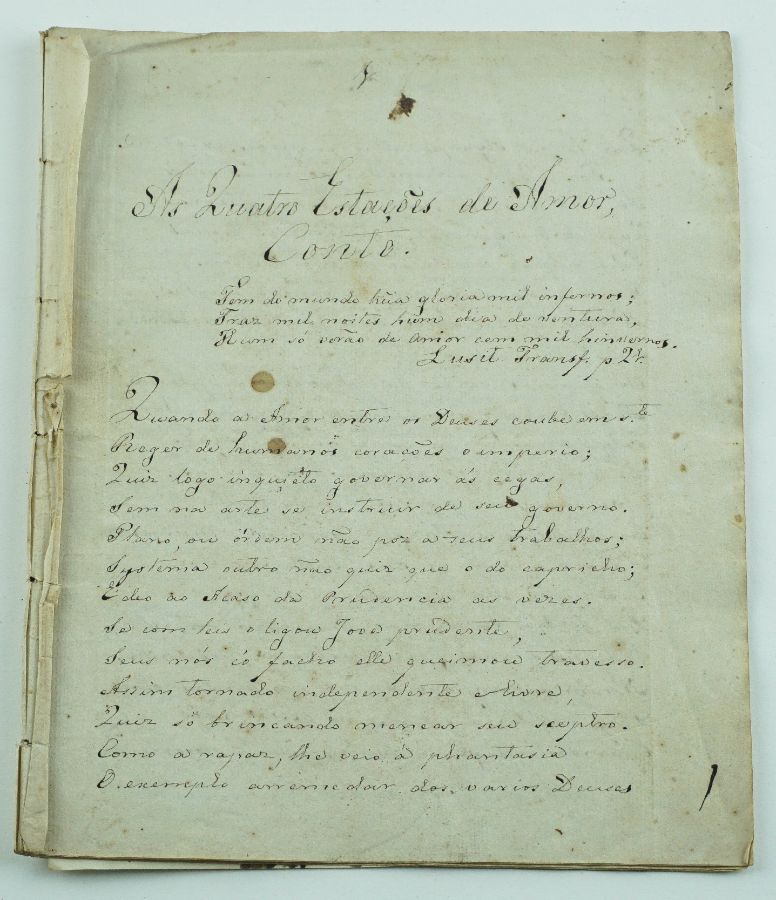 As Quatro Estações de Amor,
Conto.
Tem do mundo hũa gloria mil infernos;
Traz mil noites hũm dia de ventura,
Hum só verão de Amor cem mil hinvernos.
Lusit Transf. p 24.
Quando a Amor entre os Deuses coube em s.te
Reger de humanos corações o imperio;
Quiz logo inquiéto governar ás cegas,
Sem na arte se instruir de seu governo.
Plano, ou órdem não poz a seus trabalhos;
Systema outro não quiz que o do capricho;
E deo ao Acaso da Prudencia as vezes.
Se com leis o ligou Jove prudente,
Seus nós có facho elle queimou travesso.
Assim tornado independente e livre,
Quiz só brincando menear seu sceptro.
Como a rapaz, lhe veio á phantasia
O exemplo arremedar dos varios Deuses
1